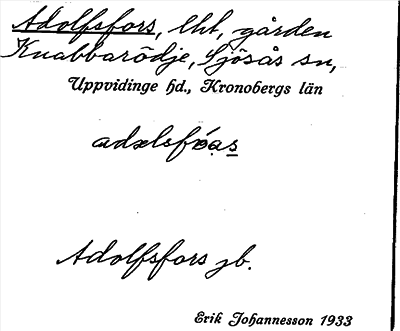 Adolfsfors, lht, gården
Knabbarödje, Sjösås sn,
Uppvidinge hd., Kronobergs län
Adolfsfors jb.
Erik Johannesson 1933